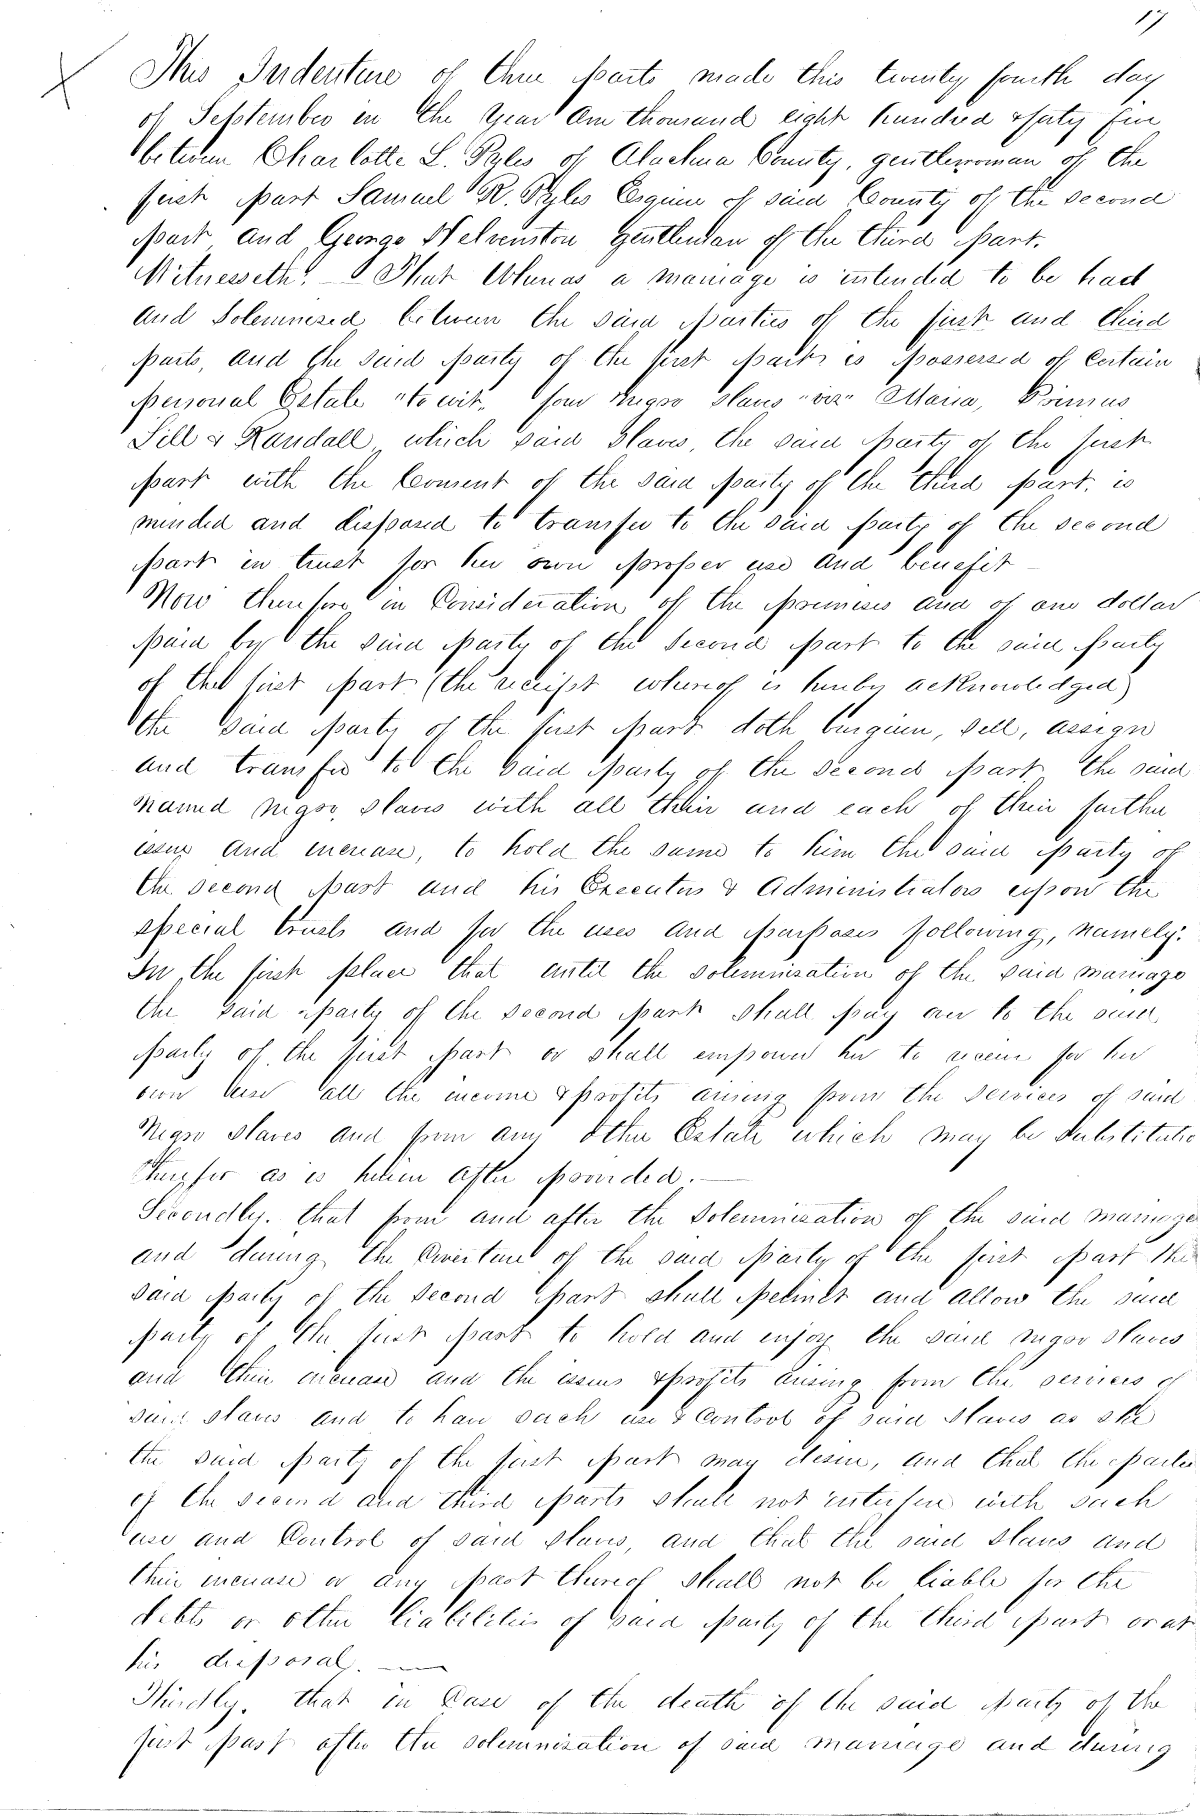 17
This Indenture of three parts made this twenty fourth day
of September in the year one thousand eight hundred & fifty five
between Charlotte L. Pyles of Alachua County, gentlewoman of the
first part Samuel R. Pyles Esquire of said County of the second
part and George Helvenston gentleman of the third part.
Witnesseth! — That Whereas a marriage is intended to be had
and Solemnized between the said parties of the first and third
parts, and the said party of the first part is possessed of certain
personal Estate "to wit" four negro slaves "viz" Maria, Primus
& Randall which said slaves, the said party of the first
part with the Consent of the said party of the third part, is
minded and disposed to transfer to the said party of the second
part in trust for her own proper use and benefit —
Now therefore in Consideration of the premises and of one dollar
paid by the said party of the second part to the said party
of the first part (the receipt whereof is hereby acknowledged)
the said party of the first part doth bargain, sell, assign
and transfer to the said party of the second part the said
named negro slaves with all their and each of their further
issue and increase, to hold the same to him the said party of
the second part and his Executors & Administrators upon the
special trusts and for the uses and purposes following, namely:
In the first place that until the solemnization of the said marriage
the said party of the second part shall pay over to the said
party of the first part or shall empower her to receive for her
own use all the income & profits arising from the services of said
Negro slaves and from any other Estate which may be substituted
therefor as is herein after provided. —
Secondly. that from and after the solemnization of the said marriage
and during the Coverture of the said party of the first part the
said party of the second part shall permit and allow the said
party of the first part to hold and enjoy the said negro slaves
and their increase and the issues & profits arising from the services of
said slaves and to have such use & control of said slaves as she
the said party of the first part may desire, and that the parties
of the second and third parts shall not interfere with such
use and Control of said slaves, and that the said slaves and
their increase or any part thereof shall not be liable for the
debts or other liabilities of said party of the third part or at
his disposal. —
Thirdly. that in Case of the death of the said party of the
first part after the solemnization of said marriage and during